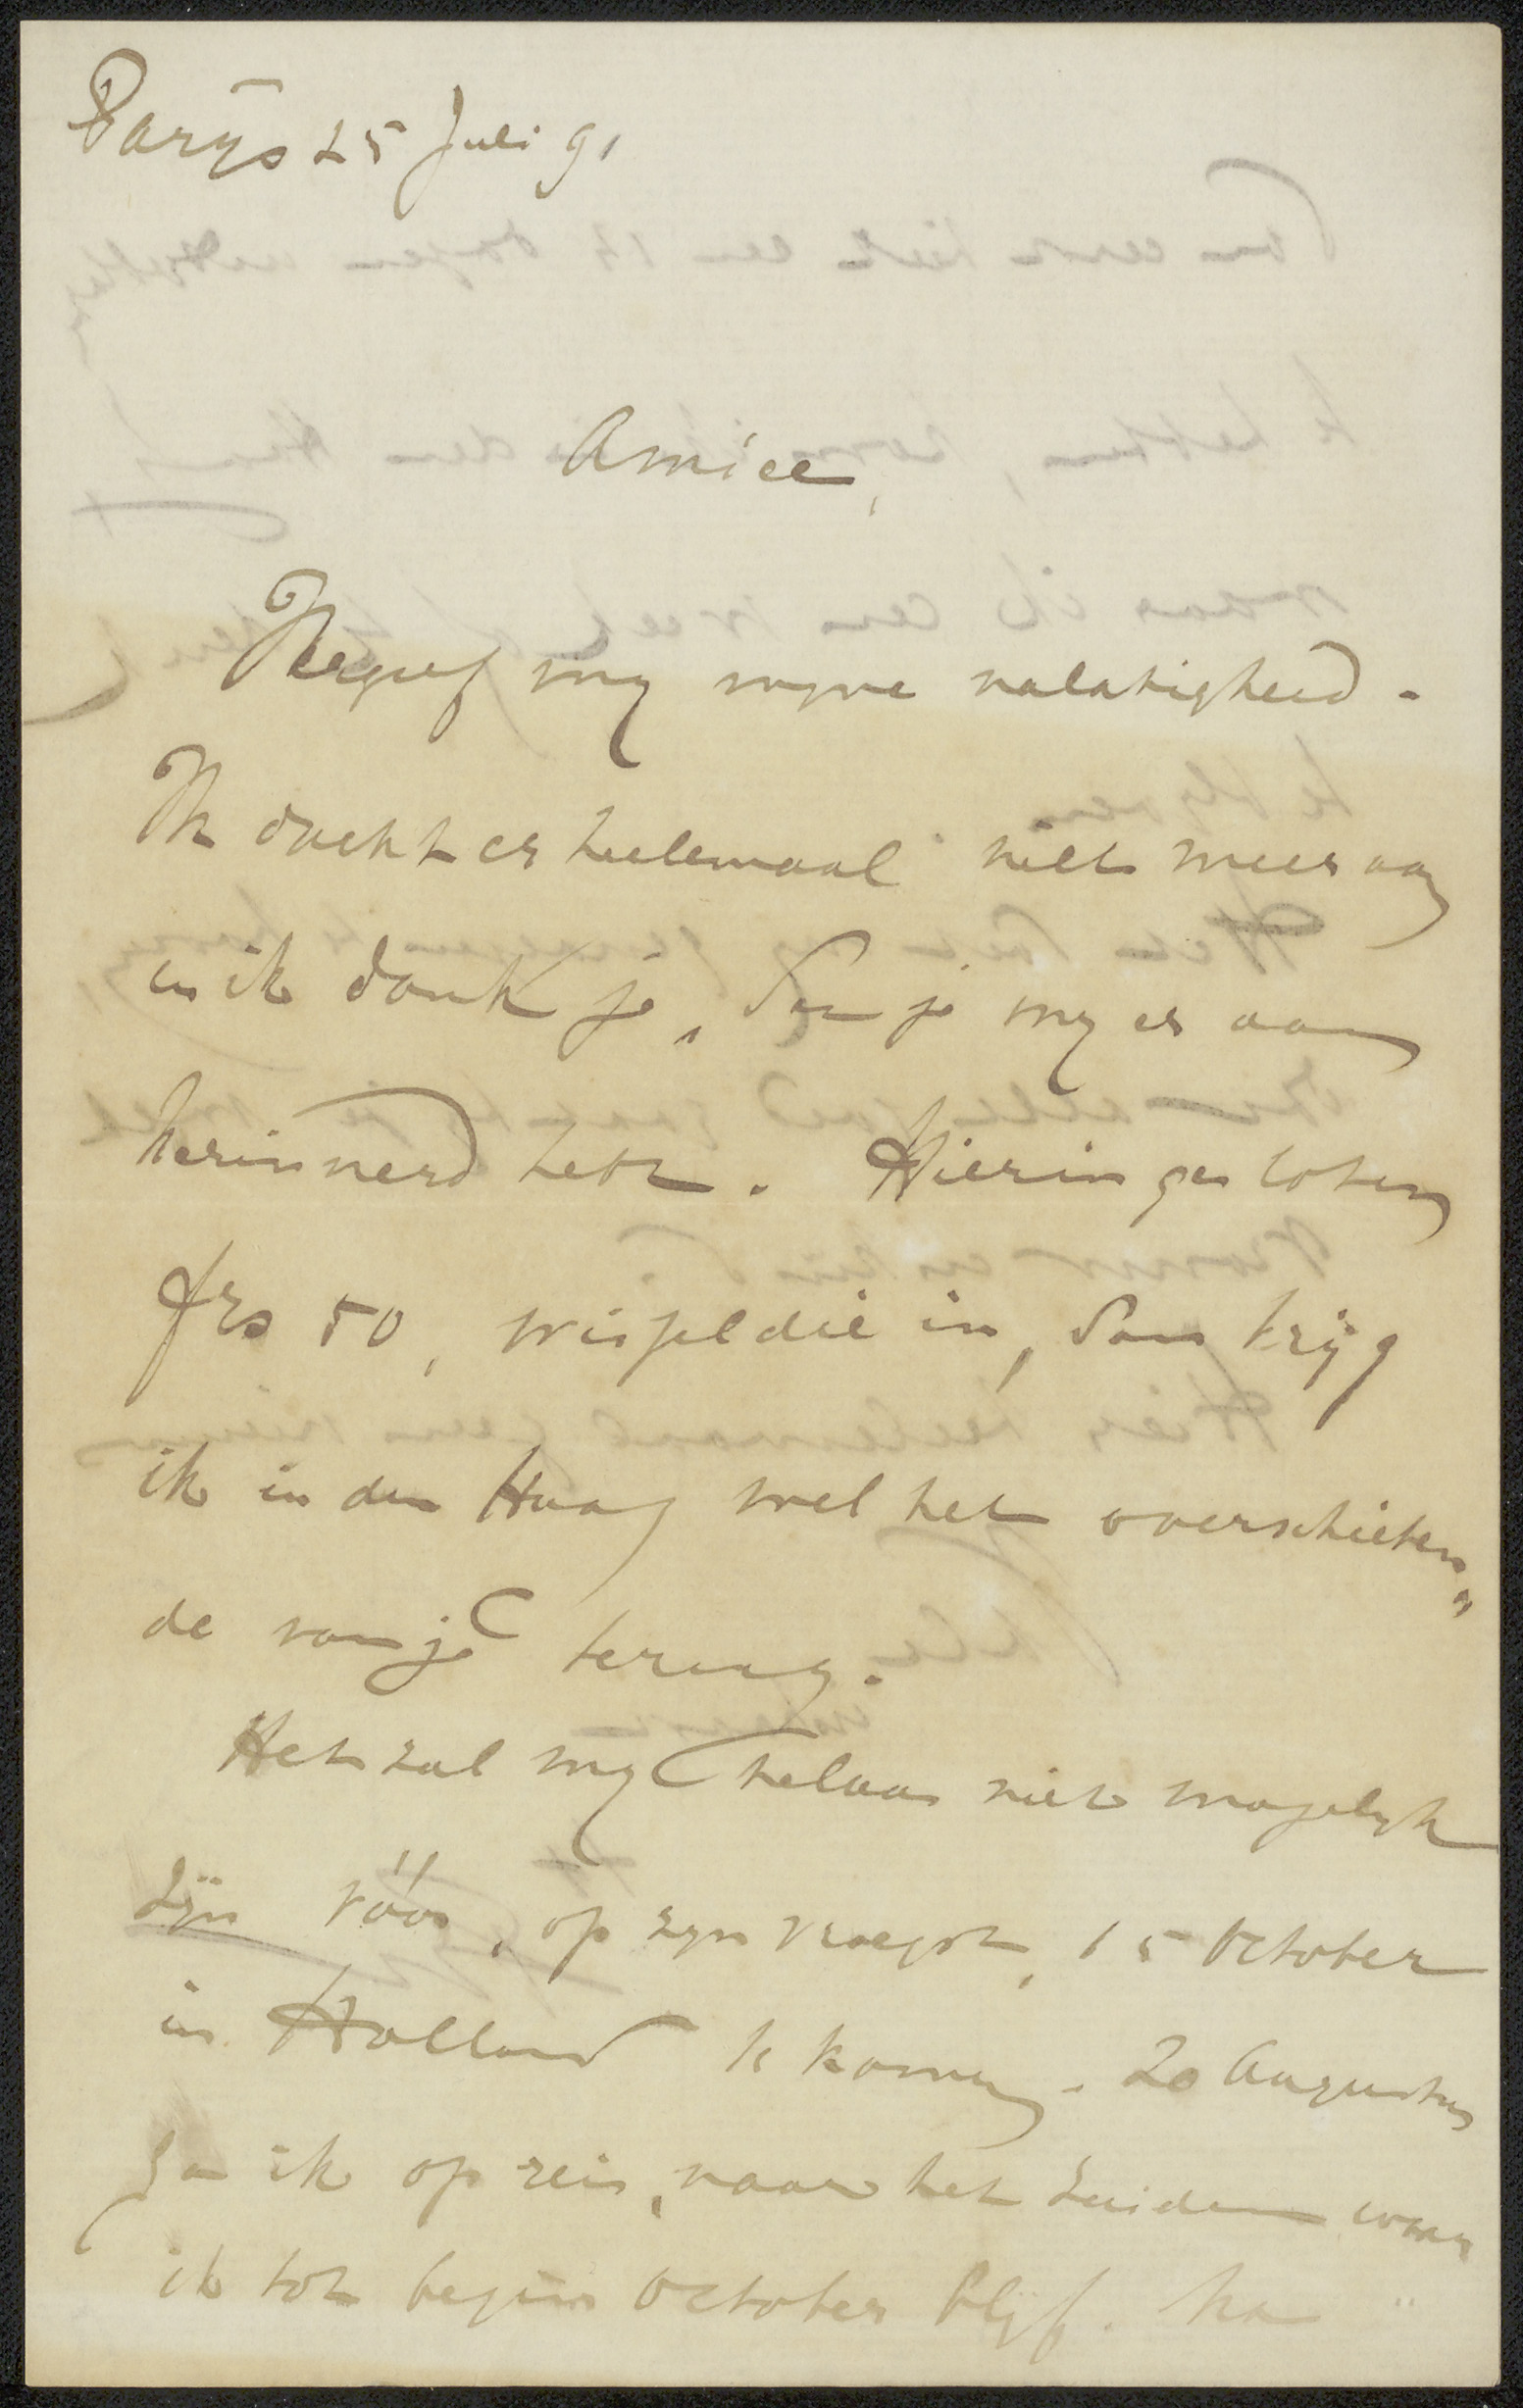 Parijs 25 Juli 91
Amice,
Vergeef my myne nalatigheid.
Ik dacht er heelemaal niet meer aan
en ik dank je, dat je my er aan
herinnerd hebt. Hierin gesloten
frs 50, wissel die in, dan krijg
ik in den Haag wel het overschieten„
de van je terug.
Het zal my helaas niet mogelyk
zijn vóór, op zyn vroegst, 15 October
in Holland te komen. 20 Augustus
ga ik op reis, naar het Zuiden waar
ik tot begin October blijf. Na